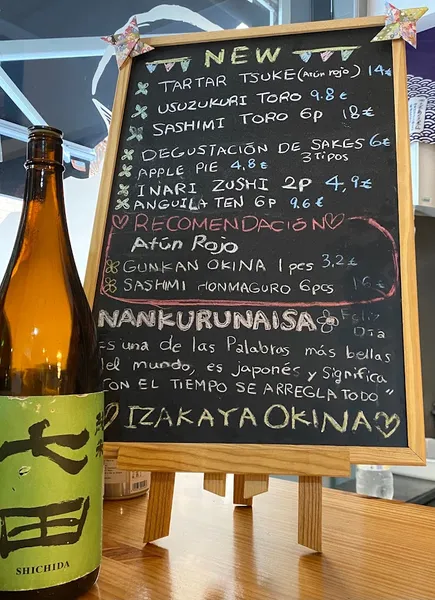 NEW
TARTAR TSUKE (Atún rojo) 14€
USUZUKURI TORO 9.8€
SASHIMI TORO 6p 18€
DEGUSTACIÓN DE SAKES 6€
3 TIPOS
APPLE PIE 4,8€
INARI ZUSHI 2P 4,9€
ANGUILA TEN 6P 9.6€
RECOMENDACIÓN
Atún Rojo
GUNKAN OKINA 1pcs 3,2€
SASHIMI HONMAGURO 6pcs 16€
NANKURUNAISA Feliz
Día
Es una de las Palabras más bellas
del mundo, es japonés y significa
"CON EL TIEMPO SE ARREGLA TODO"
IZAKAYA OKINA
七田
SHICHIDA